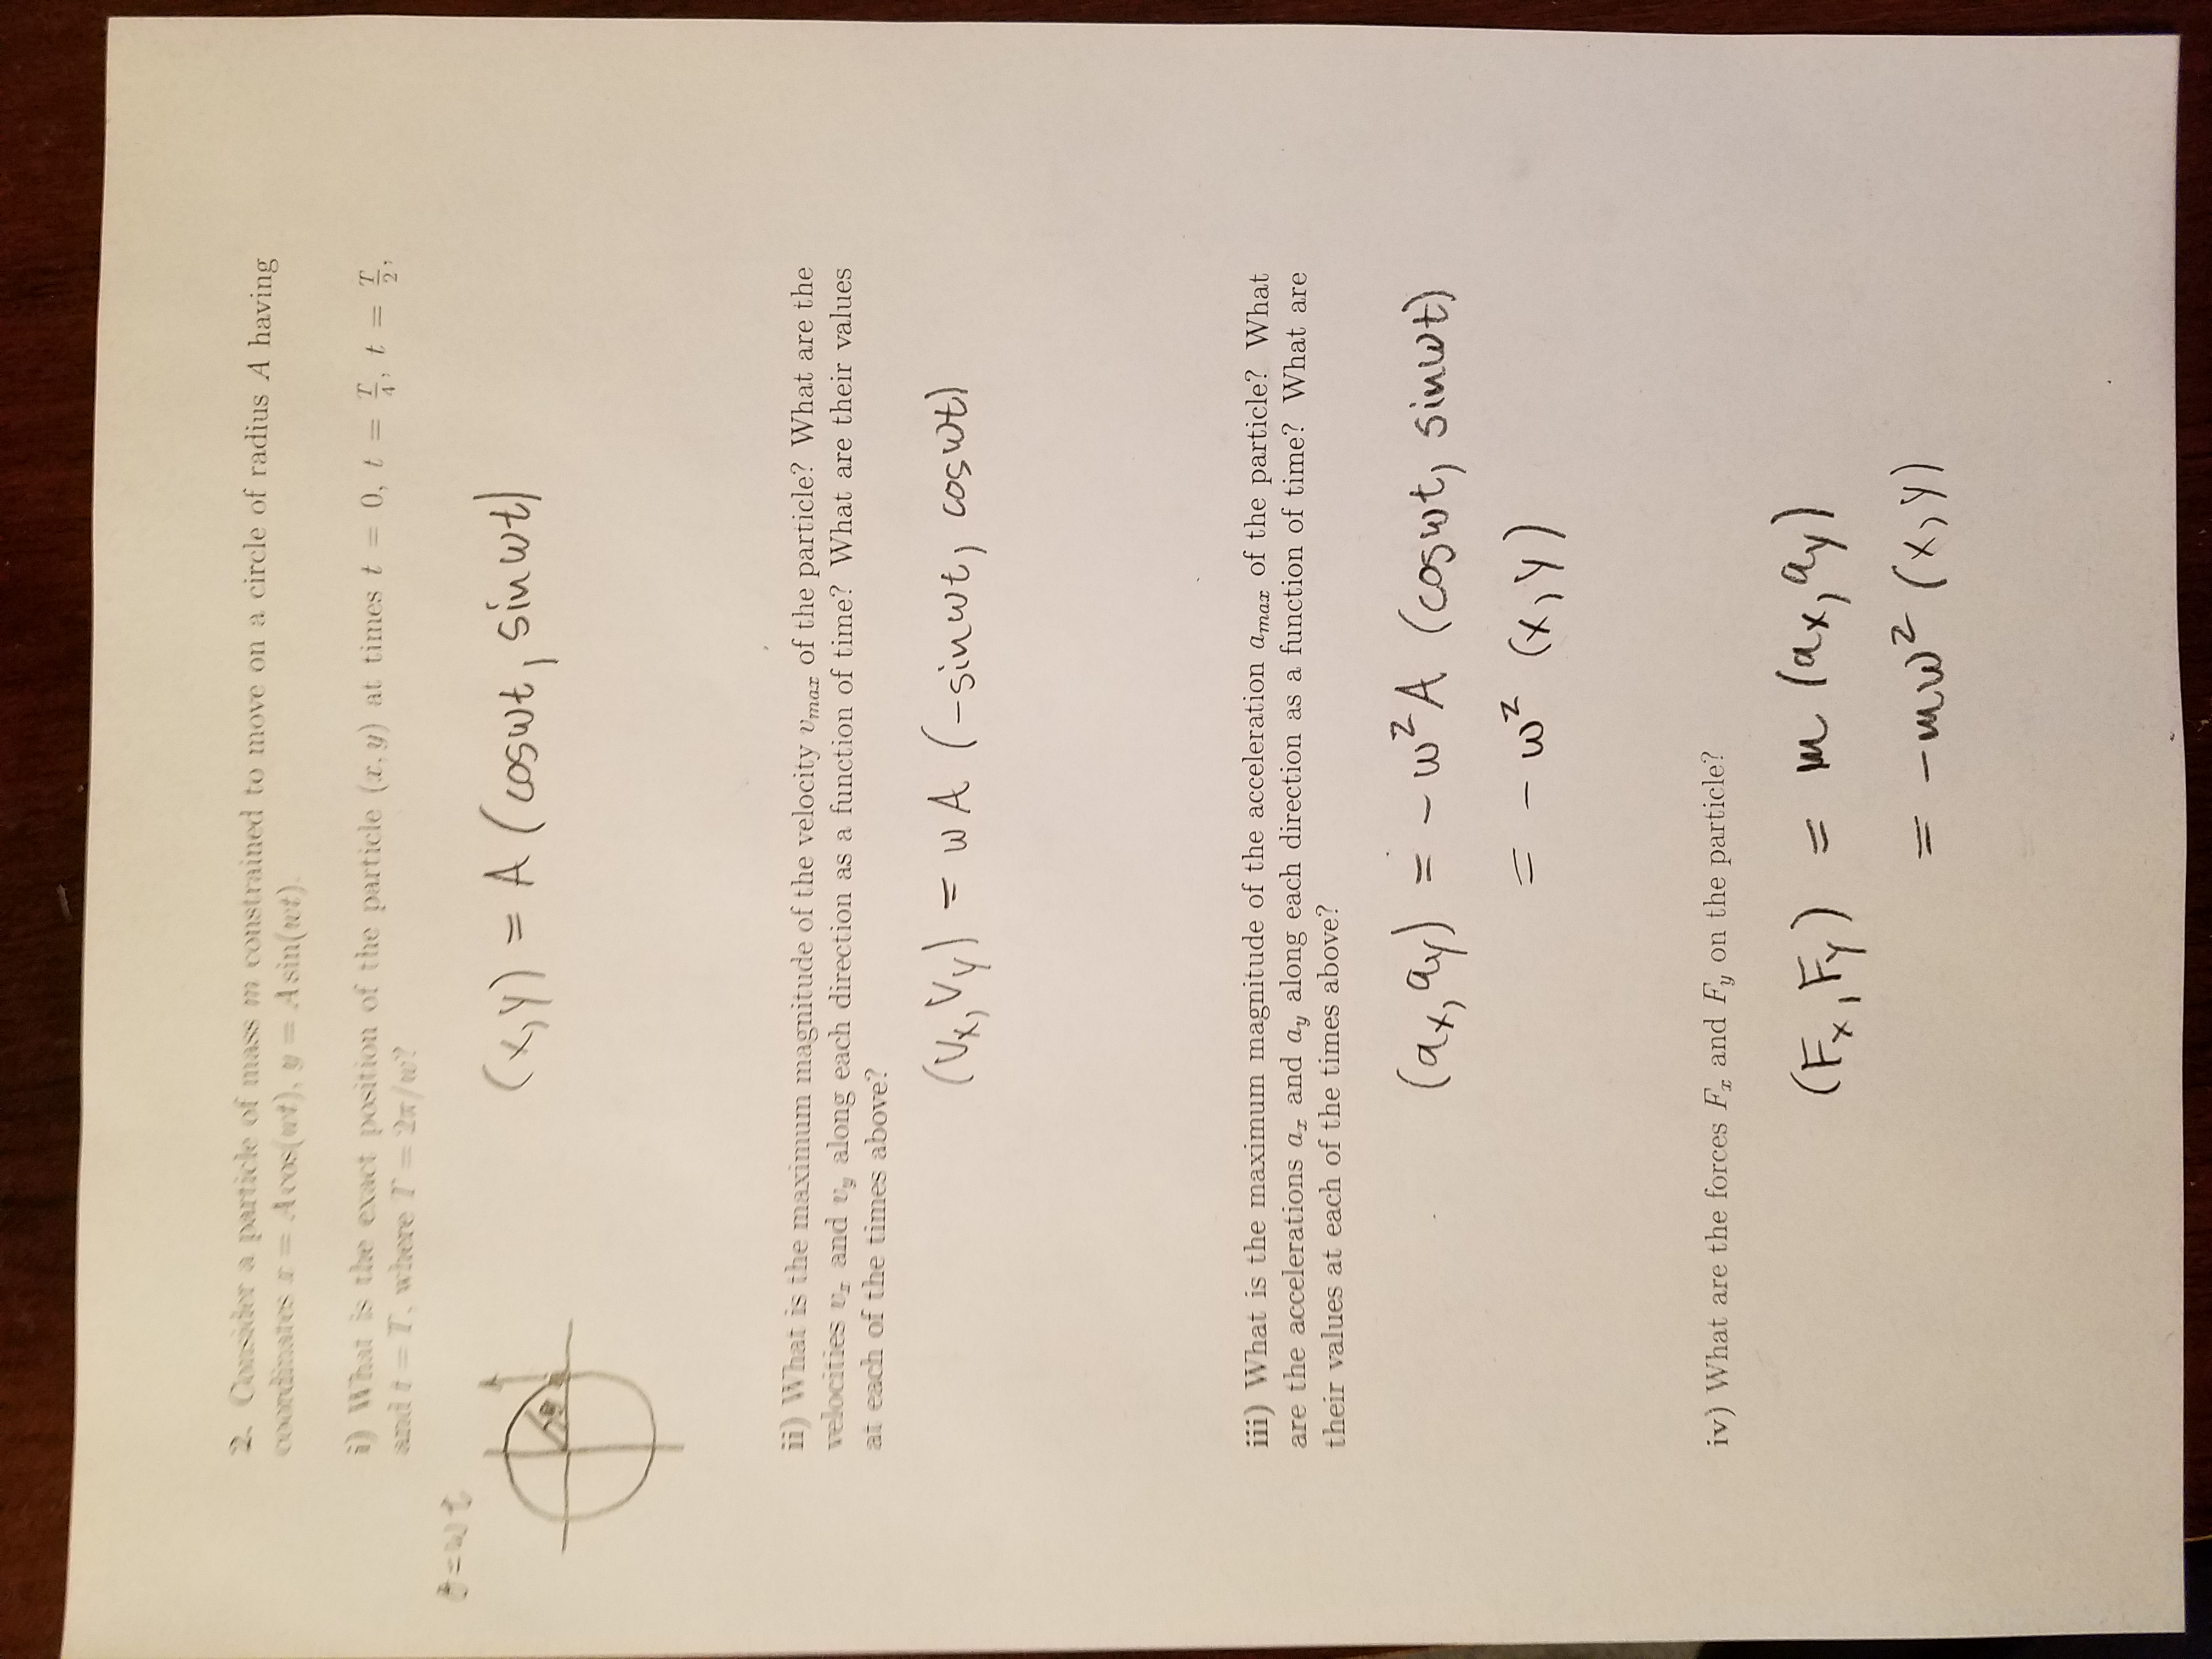 2. Consider a particle of mass m constrained to move on a circle of radius A having
coordinates x = A cos(wt), y = A sin(wt).
i) What is the exact position of the particle (x, y) at times t = 0, t = T/4, t = T/2,
and t = T, where T = 2π/w?
θ = ωt
θ
(x,y) = A (cosωt, sinωt)
ii) What is the maximum magnitude of the velocity v_max of the particle? What are the
velocities v_x and v_y along each direction as a function of time? What are their values
at each of the times above?
(V_x, V_y) = ωA (-sinωt, cosωt)
iii) What is the maximum magnitude of the acceleration a_max of the particle? What
are the accelerations a_x and a_y along each direction as a function of time? What are
their values at each of the times above?
(a_x, a_y) = -ω²A (cosωt, sinωt)
= -ω² (x,y)
iv) What are the forces F_x and F_y on the particle?
(F_x, F_y) = m (a_x, a_y)
= -mω² (x,y)